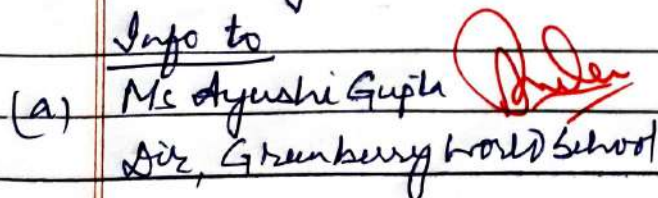 Info to
(a) Ms Ayushi Gupta
Dir, Greenberry World School